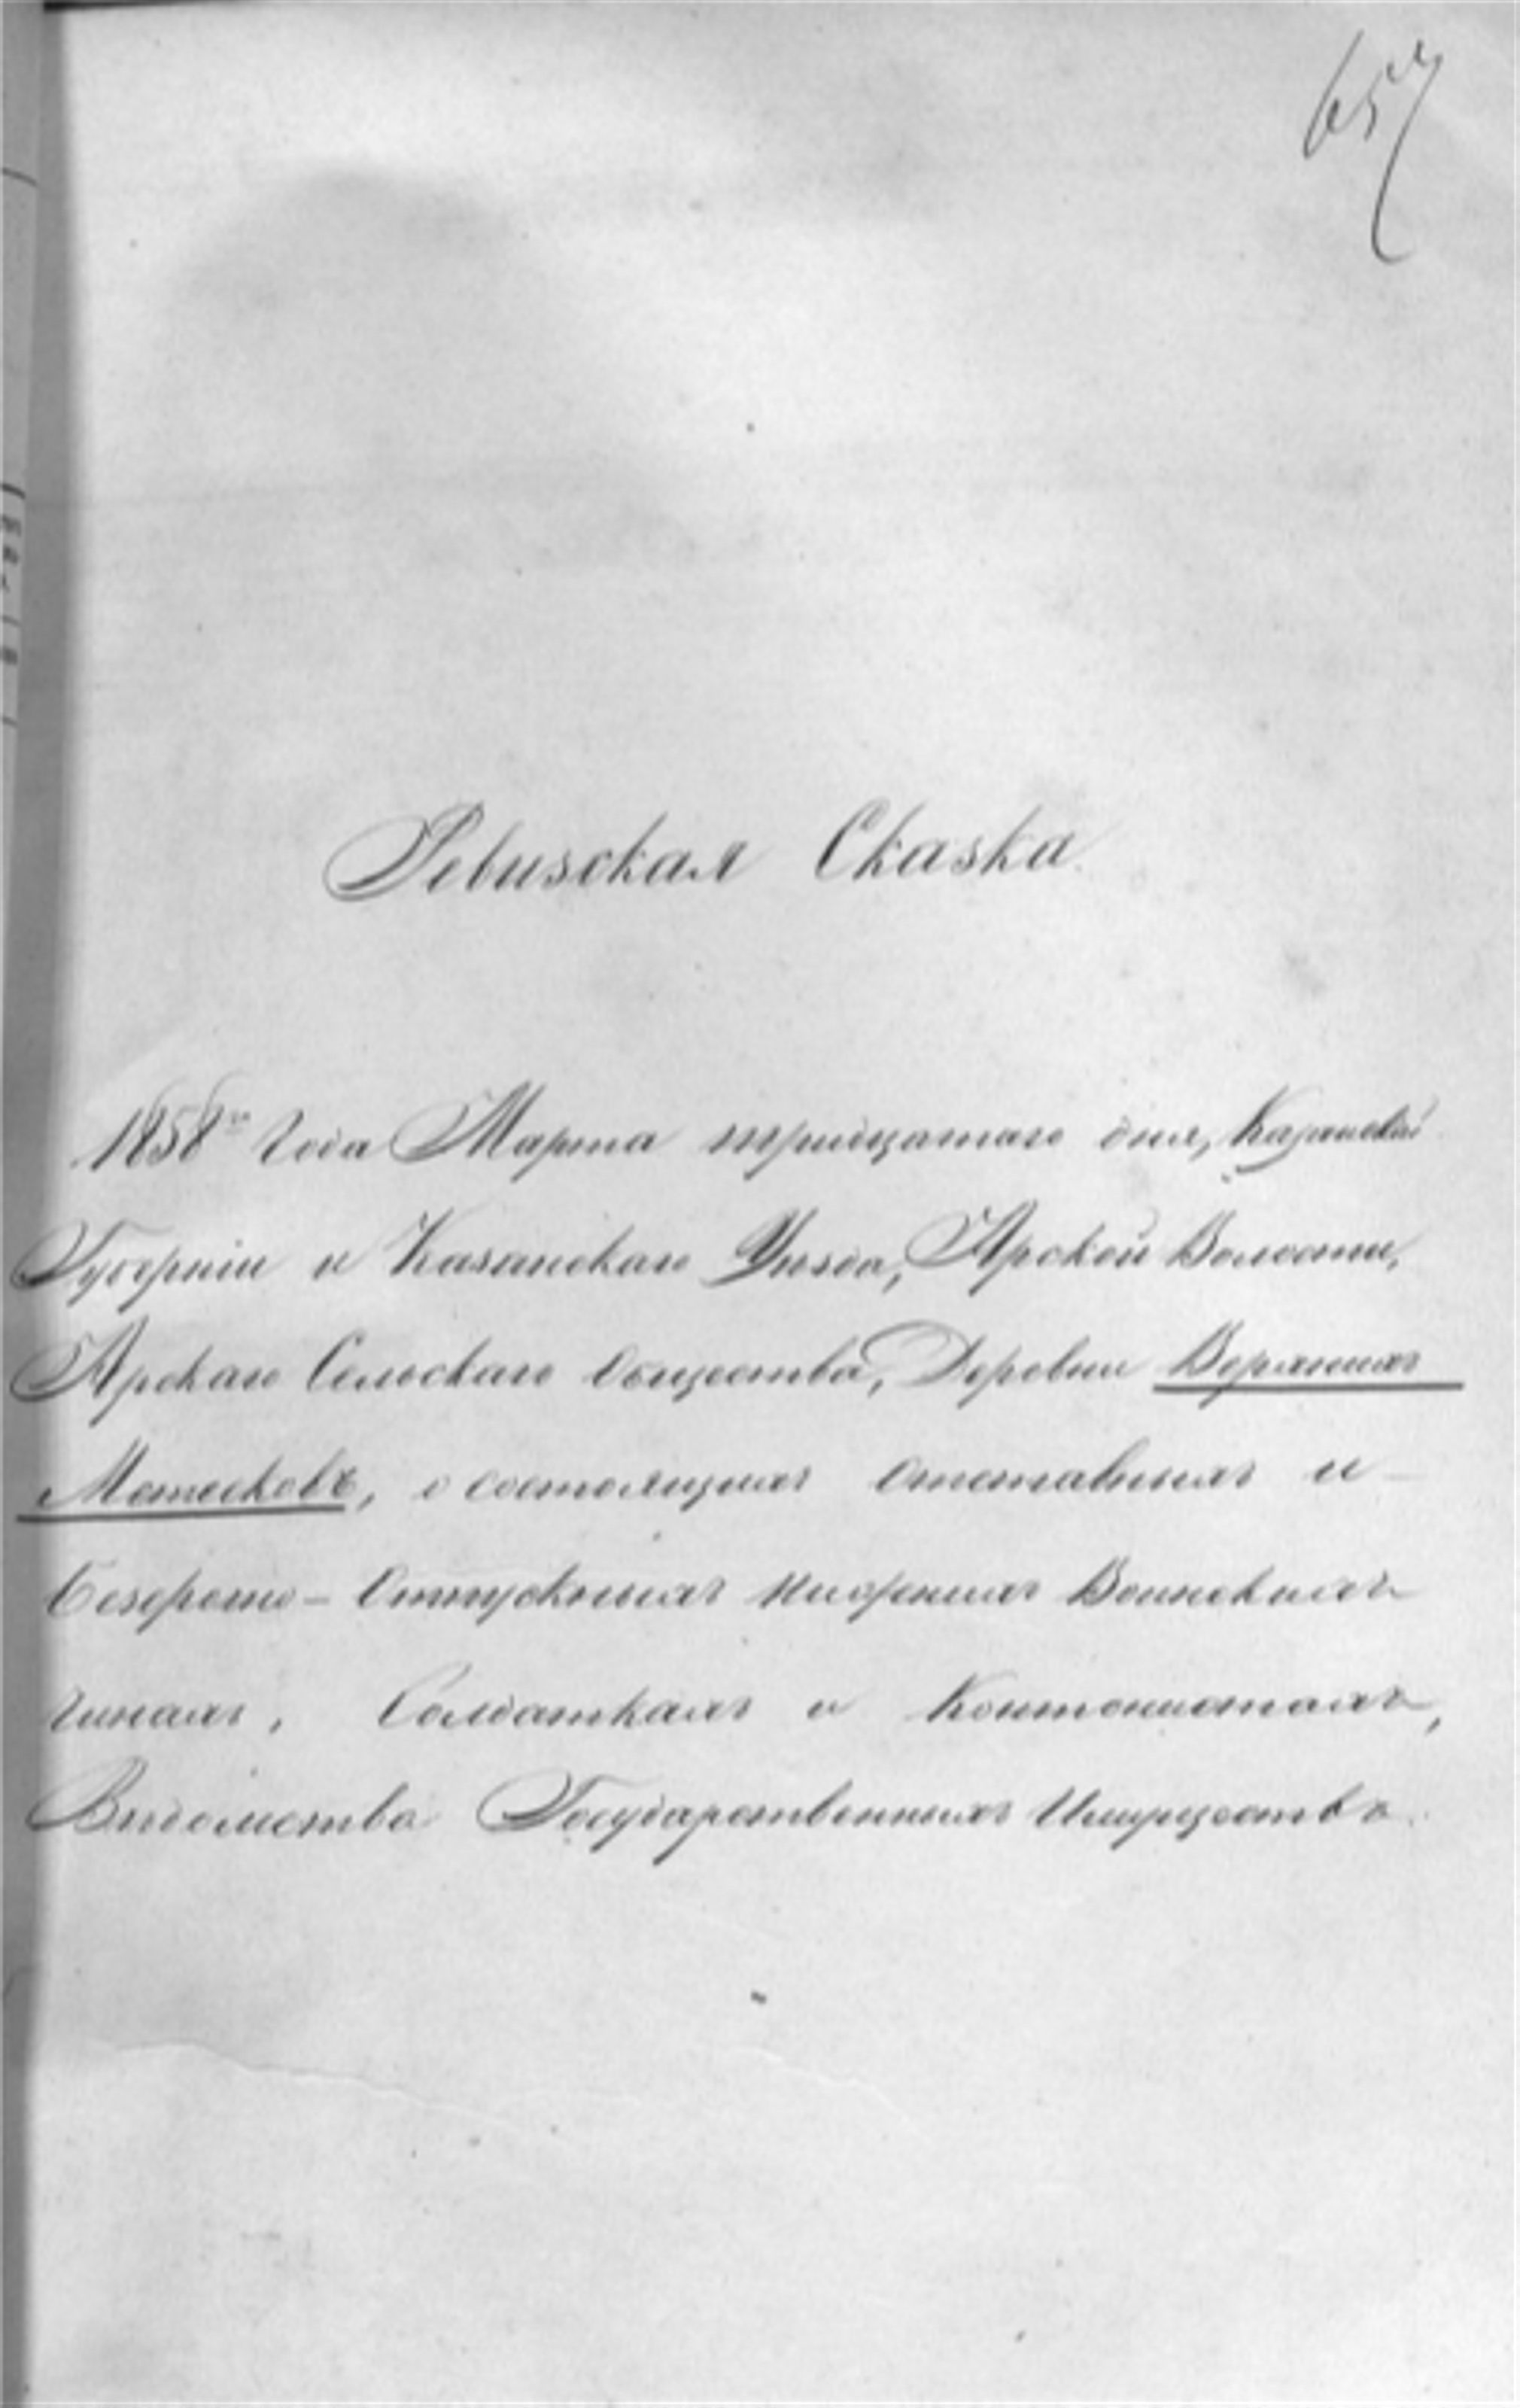 657
Ревизская Сказка.
1858го Года Марта тридцатаго дня, Казанской
Губерніи и Казанскаго Уѣзда, Арской Волости,
Арскаго Сельскаго Общества, Деревни Верхнихъ
Метесковъ, о состоящихъ Отставныхъ и
Безсрочно-Отпускныхъ Нижнихъ Воинскихъ
Чинахъ, Солдаткахъ и Кантонистахъ,
Вѣдомства Государственныхъ Имуществъ.